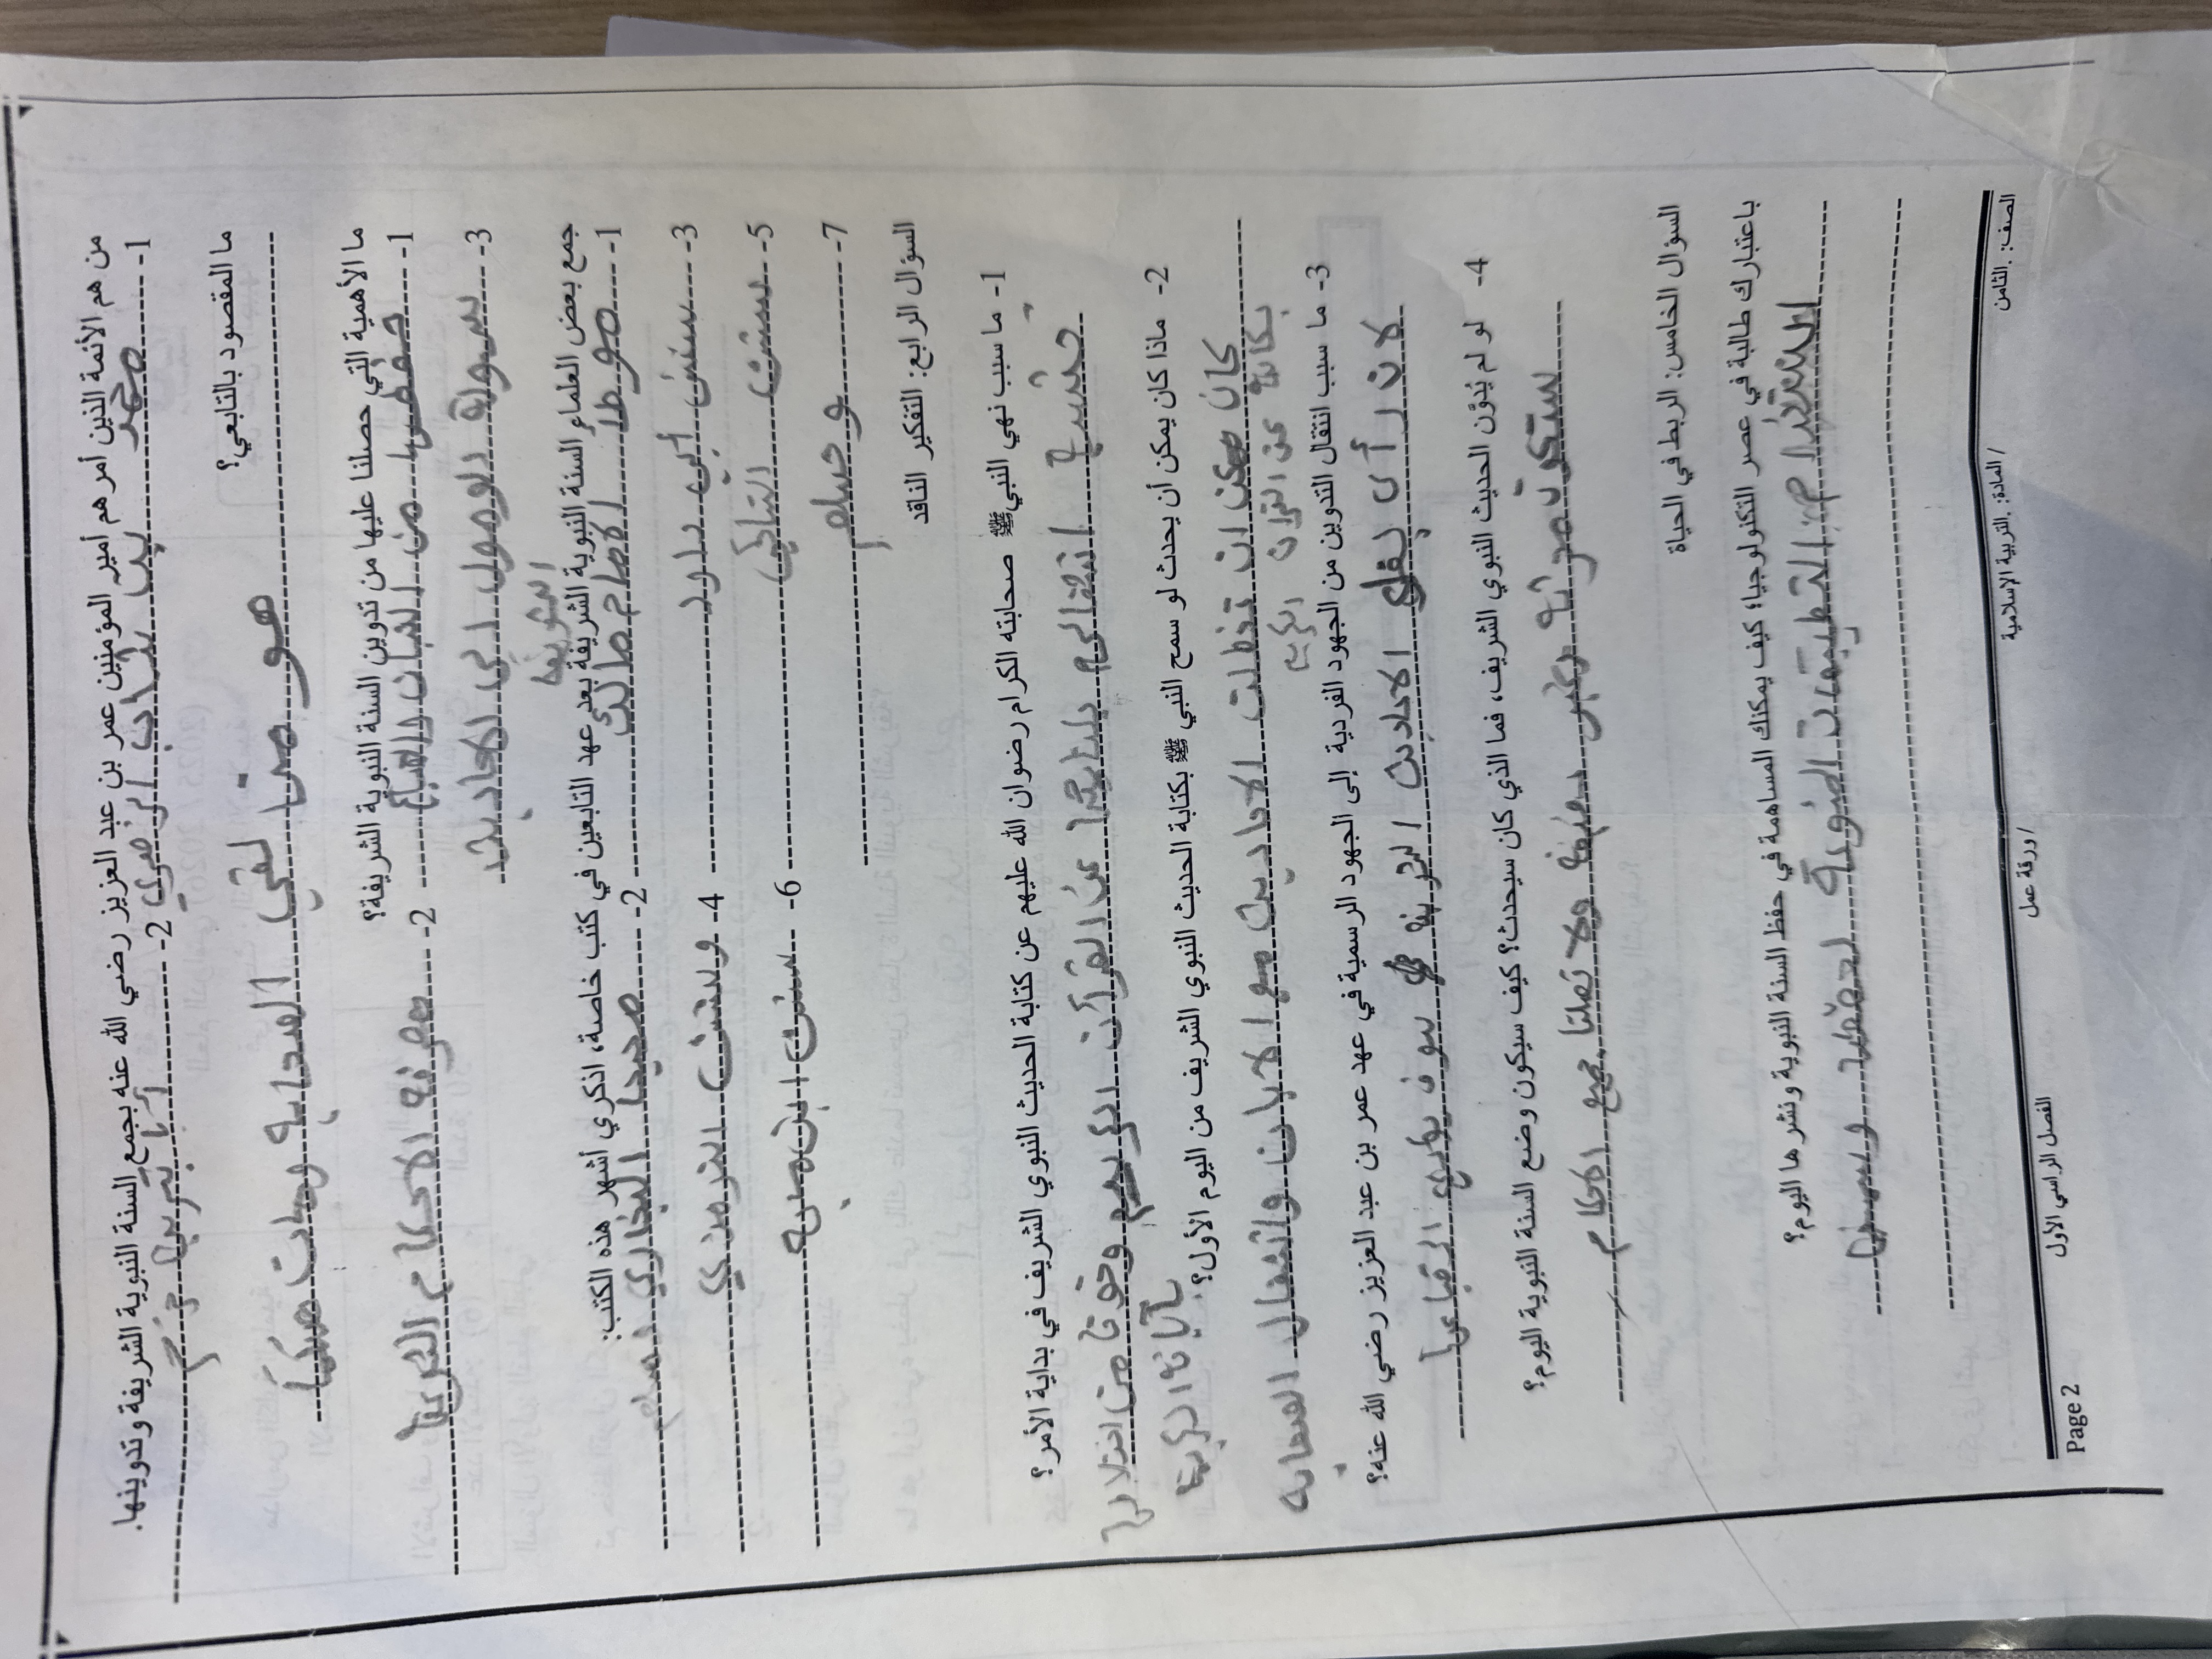 من هم الأئمة الذين أمرهم أمير المؤمنين عمر بن عبد العزيز رضي الله عنه بجمع السنة النبوية الشريفة وتدوينها.
1- محمد بن شهاب الزهري 2- أبا بكر بن حزم
ما المقصود بالتابعي؟
هو من لقي الصحابة ومات
ما الأهمية التي حصلنا عليها من تدوين السنة النبوية الشريفة؟
1- حفظها من النسيان والضياع 2- معرفة الاحكام الشرعية
3- سهولة الوصول الى الاحاديث
الشريفة
جمع بعض العلماء السنة النبوية الشريفة بعد عهد التابعين في كتب خاصة، اذكري أشهر هذه الكتب:
1- موطأ الامام مالك 2- صحيحا البخاري ومسلم
3- سنن أبي داود 4- وسنن الترمذي
5- سنن النسائي 6- سنن ابن ماجه
7- ومسلم
السؤال الرابع: التفكير الناقد
1- ما سبب نهي النبي ﷺ صحابته الكرام رضوان الله عليهم عن كتابة الحديث النبوي الشريف في بداية الأمر؟
خشية انشغالهم بكتابتها عن القرآن الكريم وخوفا من اختلاطها
بآياته الكريمة
2- ماذا كان يمكن أن يحدث لو سمح النبي ﷺ بكتابة الحديث النبوي الشريف من اليوم الأول؟
كان ممكن ان تختلط الاحاديث مع الايات وانشغال الصحابة
بكتابة عن القران الكريم
3- ما سبب انتقال التدوين من الجهود الفردية إلى الجهود الرسمية في عهد عمر بن عبد العزيز رضي الله عنه؟
لانه رأى بفضل الاحاديث الشريفة سوف
4- لو لم يُدوَّن الحديث النبوي الشريف، فما الذي كان سيحدث؟ كيف سيكون وضع السنة النبوية اليوم؟
ستكون ضعيفة ولا تصلنا جميع الاحكام
السؤال الخامس: الربط في الحياة
باعتبارك طالبة في عصر التكنولوجيا؛ كيف يمكنك المساهمة في حفظ السنة النبوية ونشرها اليوم؟
استخدام التطبيقات
الصف: .الثامن / المادة: .التربية الإسلامية / ورقة عمل الفصل الراسي الأول
Page 2